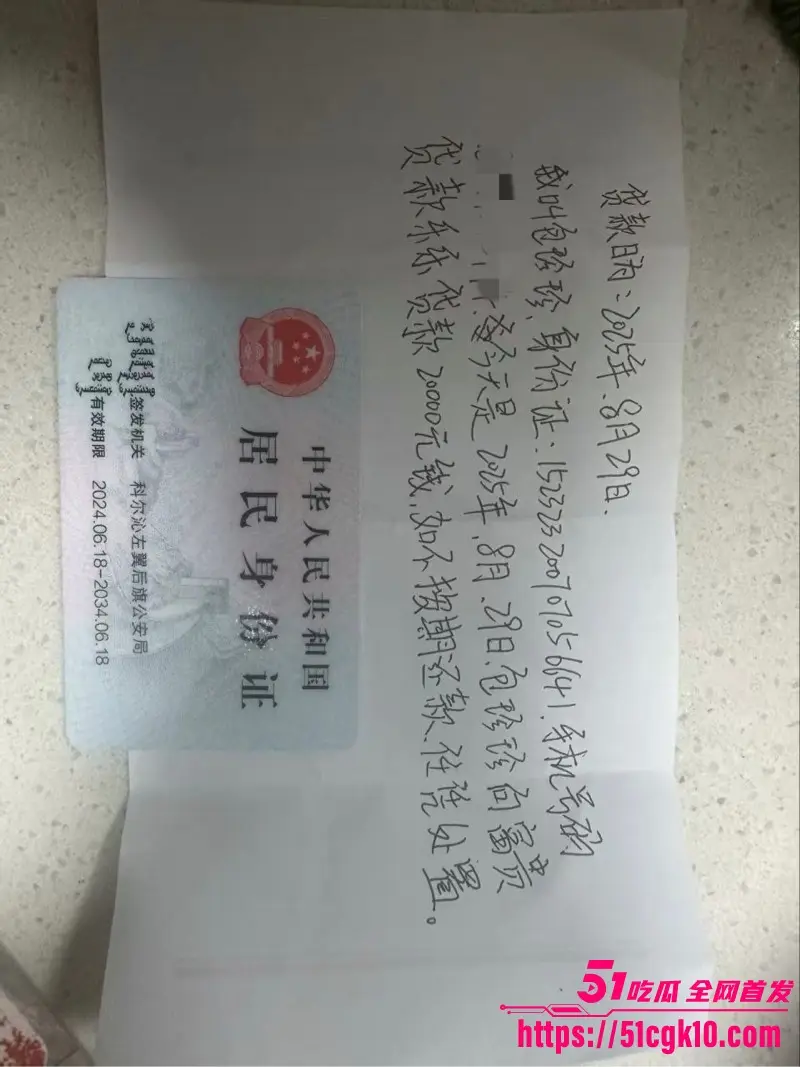 贷款日为：2025年、8月29日.
我叫[姓名略]、身份证：[号码略]、手机号码
爸今天是2025年、8月、29日、[姓名略]向富贵
贷款乐乐贷款20000元钱，如不按期还款任凭处置。
中华人民共和国
居民身份证
签发机关 科尔沁左翼后旗公安局
有效期限 2024.06.18-2034.06.18
51吃瓜 全网首发
https://51cgk10.com